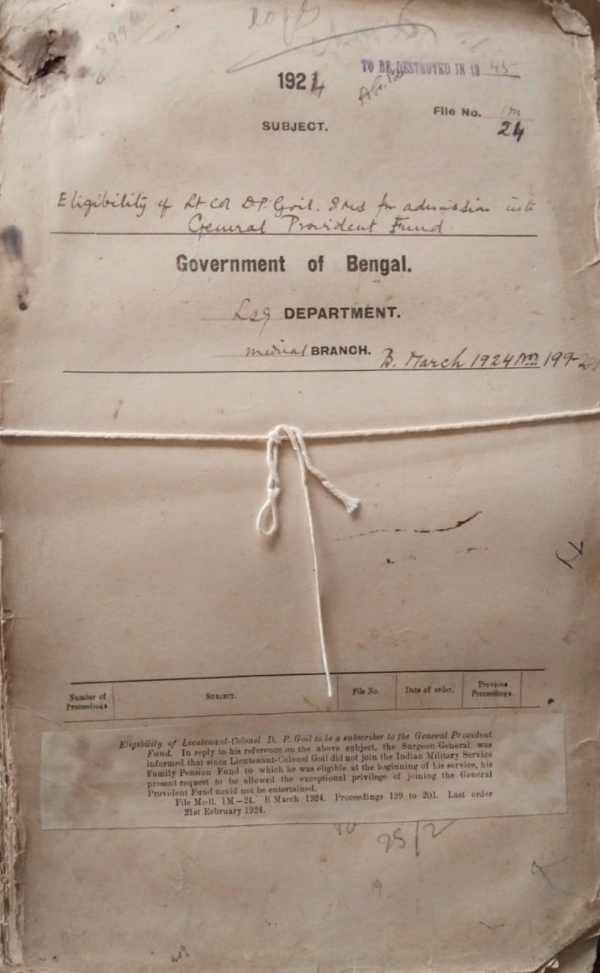 1924
TO BE DESTROYED IN 19 45
File No. 1m
24
SUBJECT.
Eligibility of Lt Col D.P. Goil. I.M.S for admission into
General Provident Fund.
Government of Bengal.
LSG DEPARTMENT.
medical BRANCH. B. March 1924 199-201
Number of Proceedings
Subject.
File No.
Date of order.
Previous Proceedings.
Eligibility of Lieutenant-Colonel D. P. Goil to be a subscriber to the General Provident
Fund. In reply to his reference on the above subject, the Surgeon-General was
informed that since Lieutenant-Colonel Goil did not join the Indian Military Service
Family Pension Fund to which he was eligible at the beginning of his service, his
present request to be allowed the exceptional privilege of joining the General
Provident Fund could not be entertained.
File Medl. 1M—24. B March 1924. Proceedings 199 to 201. Last order
21st February 1924.
25/2